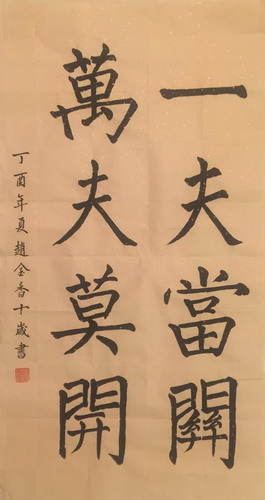 一夫當關
萬夫莫開
丁酉年夏趙金香十歲書